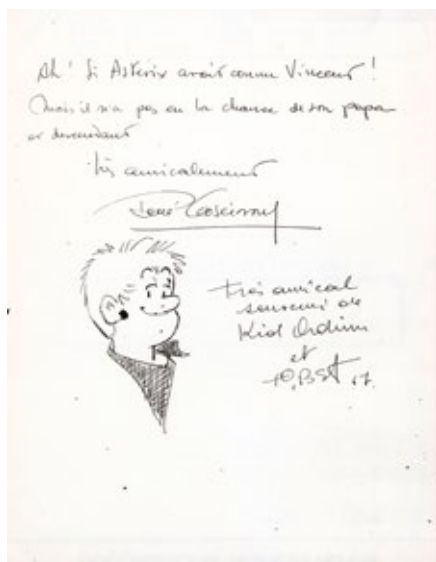 Ah! Si Astérix avait connu Vincent!
Mais il n'a pas eu la chance de son papa
et descendant
très amicalement
René Goscinny
très amical
souvenir de
Kid Ordinn
et
67.